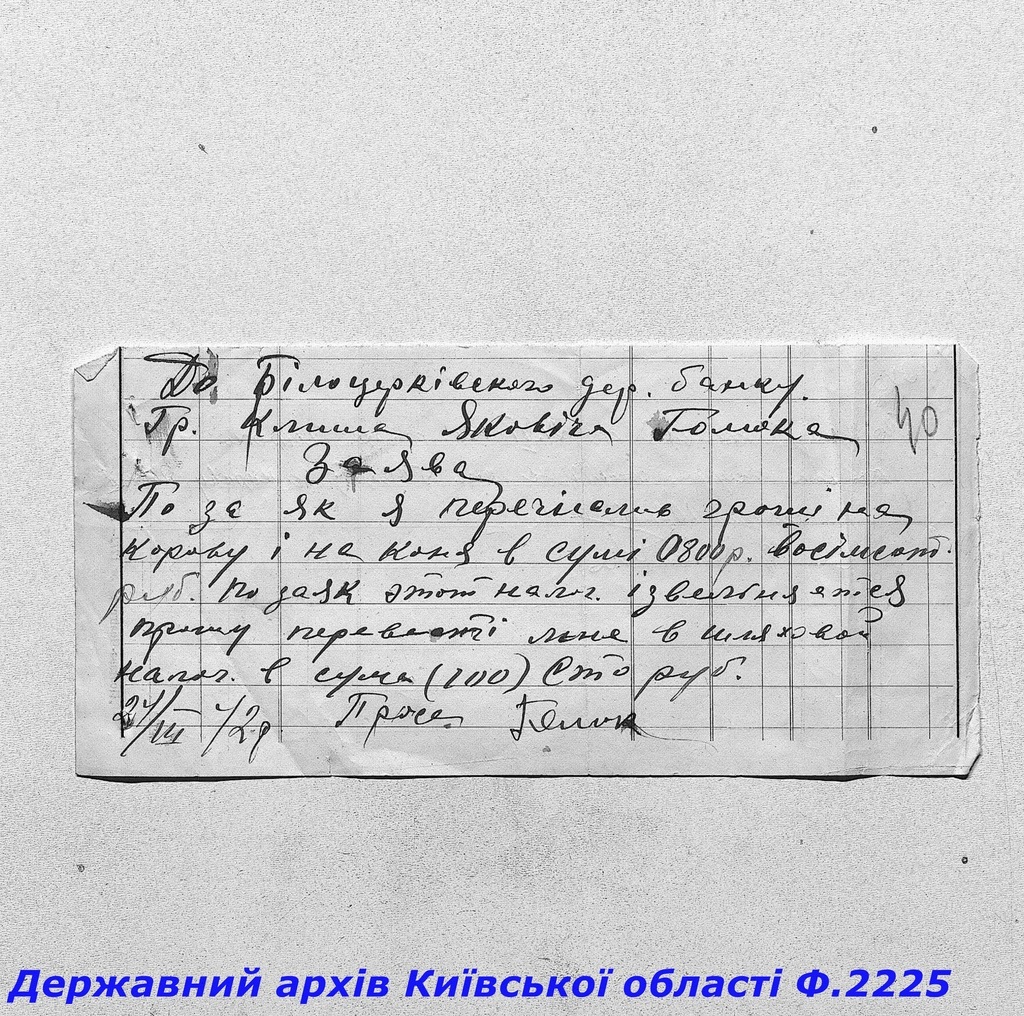 До Білоцерківського дер. банку.
Гр. Клима Яковіча
40
Заява
По за як я перечислив гроші на
корову і на коня в сумі 0800р. Восімсот.
руб. По заяк этот налог. ізвеліняется
прошу перевесті мне в шляховой
налог. в сума (100) Сто руб.
24/III 42р
Державний архів Київської області Ф.2225